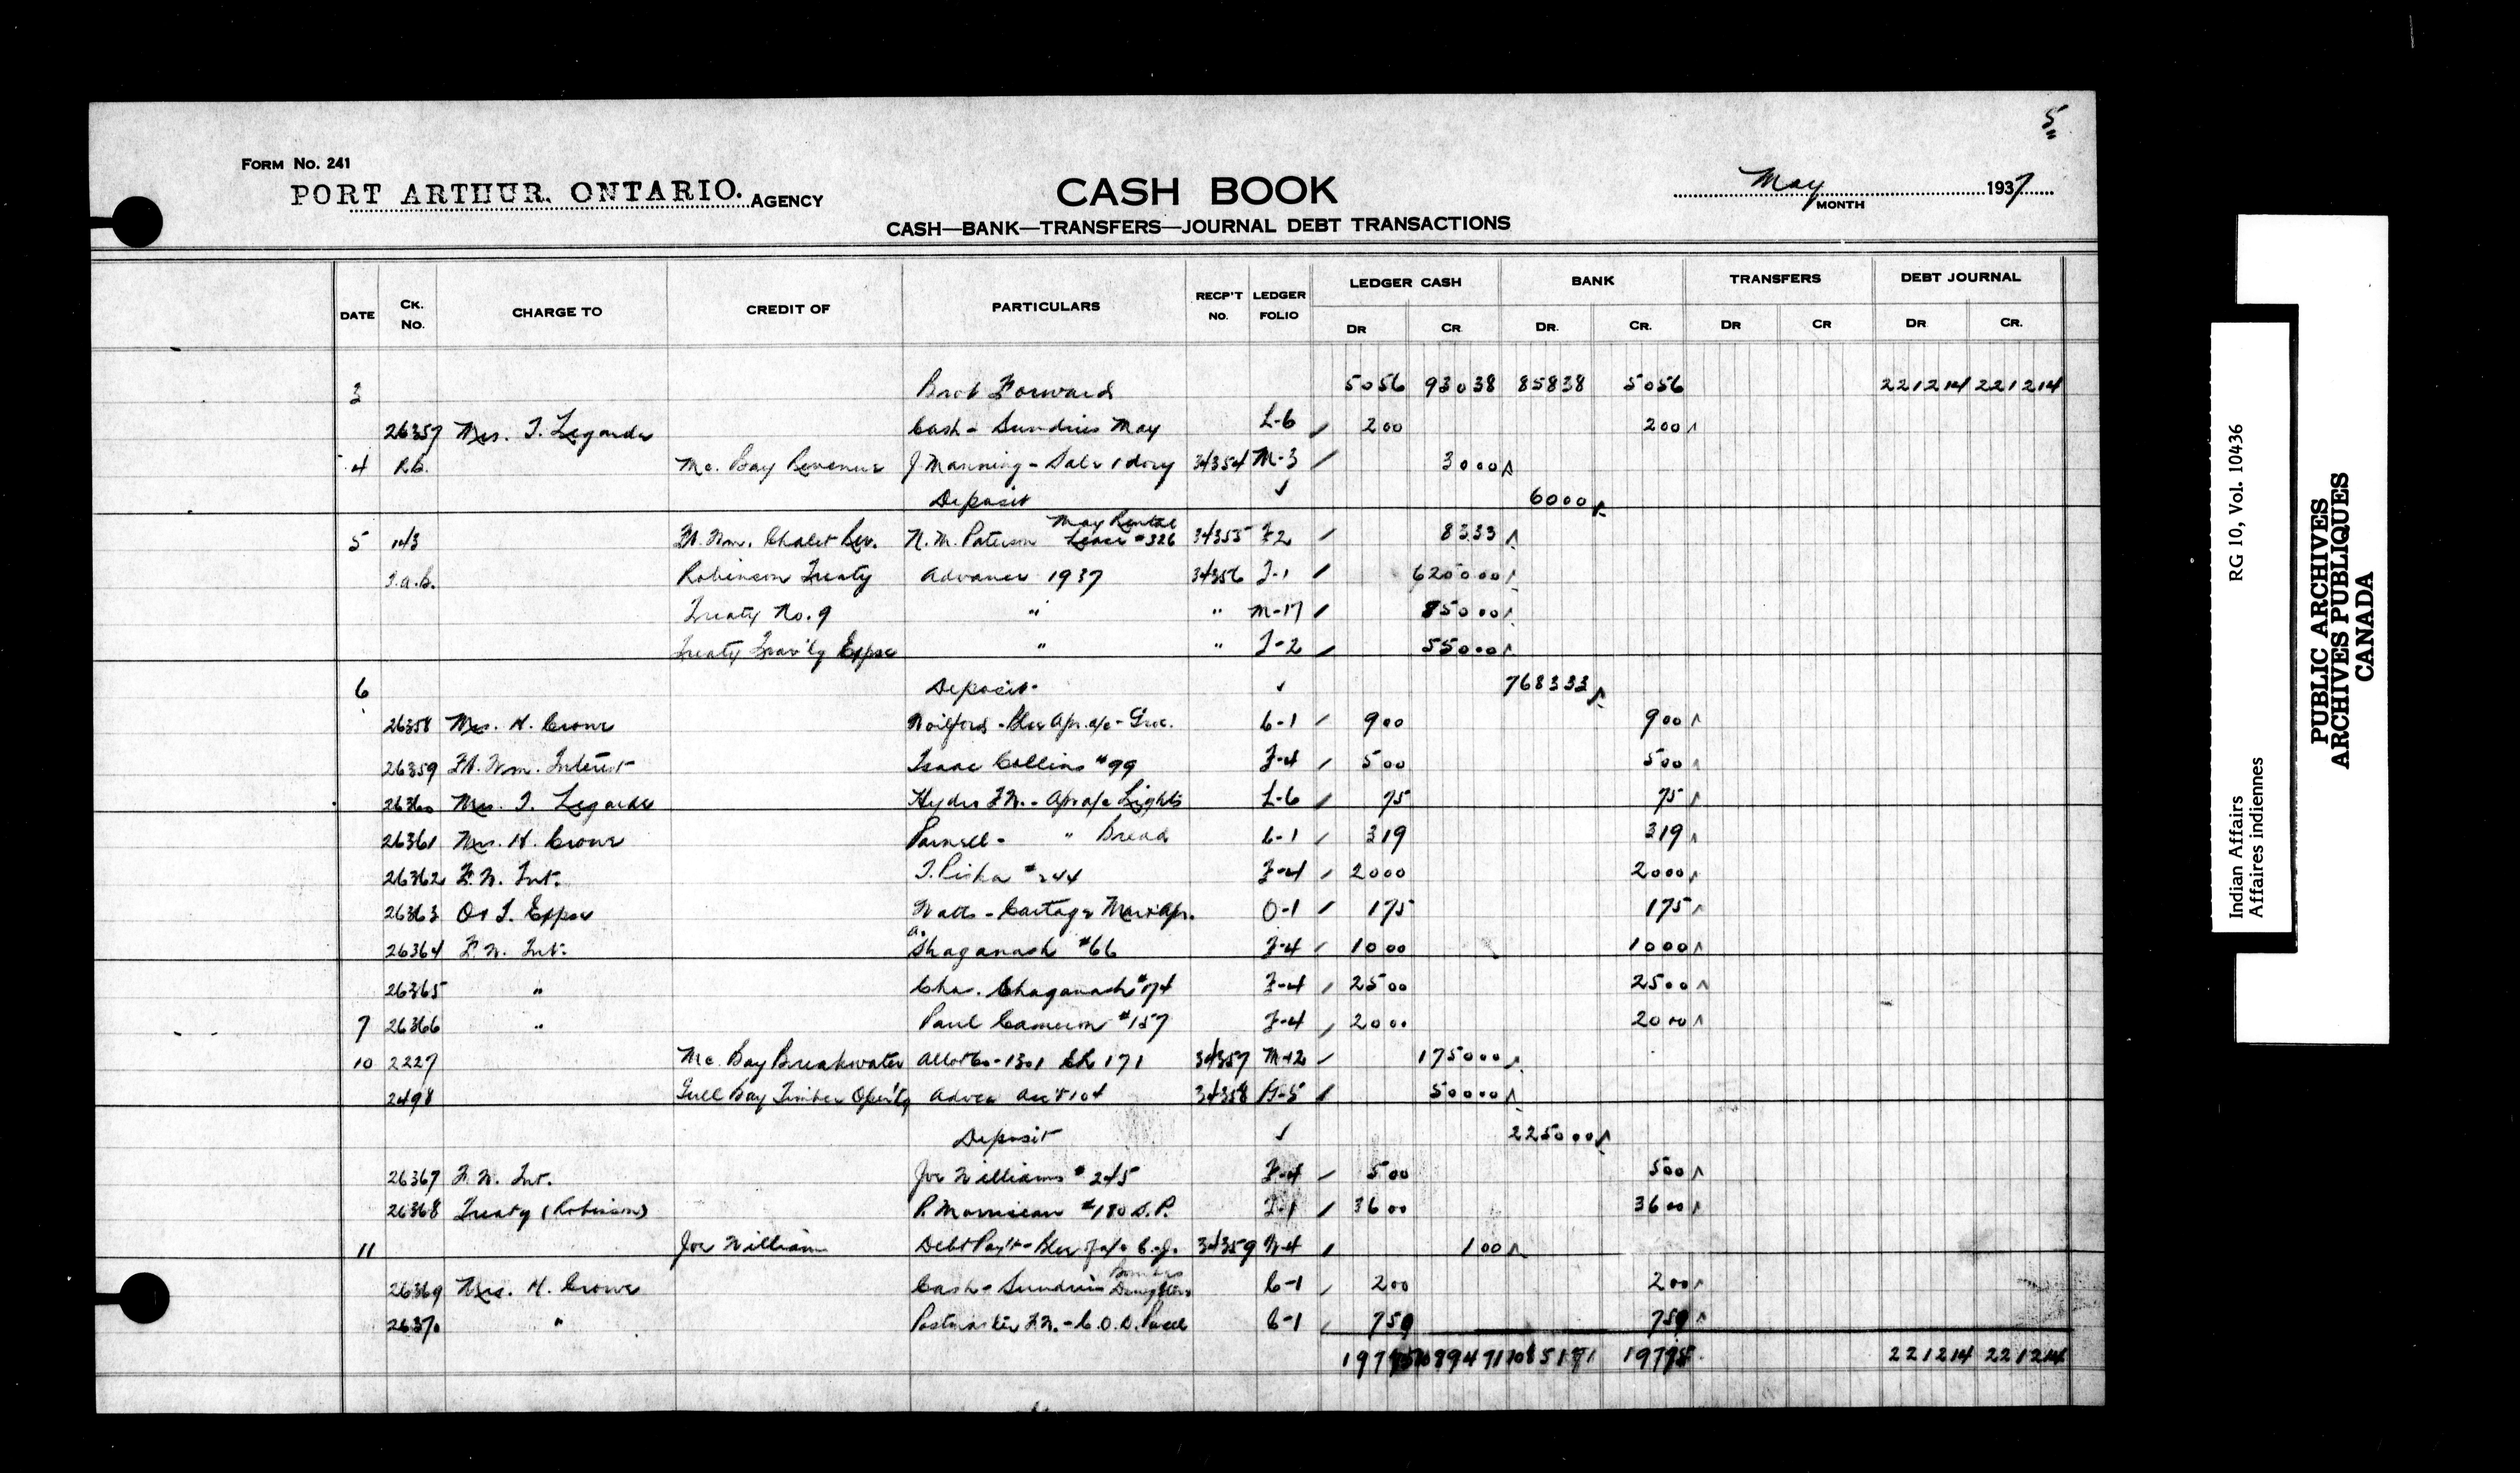 5
FORM NO. 241
PORT ARTHUR. ONTARIO. AGENCY
CASH BOOK
May 1937
MONTH
CASH—BANK—TRANSFERS—JOURNAL DEBT TRANSACTIONS
DATE CK. NO. CHARGE TO CREDIT OF PARTICULARS RECP'T NO. LEDGER FOLIO LEDGER CASH BANK TRANSFERS DEBT JOURNAL
DR CR DR. CR. DR CR DR CR.
3 Brot Forward 5056 93038 85838 5056 221214 221214
26357 Mrs. T. Legarde Cash - Sundries May L-6 200 200
4 Mc. Bay Revenue J. Manning - Sale 1 dory 34354 M-3 3000
Deposit ✓ 6000
5 143 Ft. Wm. Chalet Rev. N. M. Paterson May Rental Lease #326 34355 F-2 8333
Robinson Treaty Advance 1937 34356 T-1 625000
Treaty No. 9 " " M-17 85000
Treaty Trav'lg Expse " " T-2 55000
6 Deposit ✓ 768333
26358 Mrs. H. Crowe 6-1 900 900
26359 Ft. Wm. Interest Isaac Collins #99 F-4 500 500
26360 Mrs. T. Legarde Hydro F.W. - Apr a/c Lights L-6 75 75
26361 Mrs. H. Crowe Parnell - " Bread C-1 319 319
26362 F. W. Int. #244 F-4 2000 2000
26363 Expse Watts - Cartage Mar & Apr. O-1 175 175
26364 F. W. Int. A. Shaganash #66 F-4 1000 1000
26365 " Chas. Shaganash #74 F-4 2500 2500
7 26366 " Paul Cameron #157 F-4 2000 2000
10 2227 Mc. Bay Breakwater 171 34357 M-12 175000
2498 Gull Bay Timber Oper'tg 34358 G-5 50000
Deposit ✓ 225000
26367 F. W. Int. Joe Williams #245 F-4 500 500
26368 Treaty (Robinson) P. Morriseau #180 T-1 3600 3600
11 Joe Williams Debt Pay't 34359 W-4 100
26369 Mrs. H. Crowe Cash - Sundries Daughters C-1 200 200
26370 " Postmaster F.W. - C.O.D. Parcel C-1 759 759
19775 1089471 1085171 19775 221214 221214
Indian Affairs
Affaires indiennes
RG 10, Vol. 10436
PUBLIC ARCHIVES
ARCHIVES PUBLIQUES
CANADA